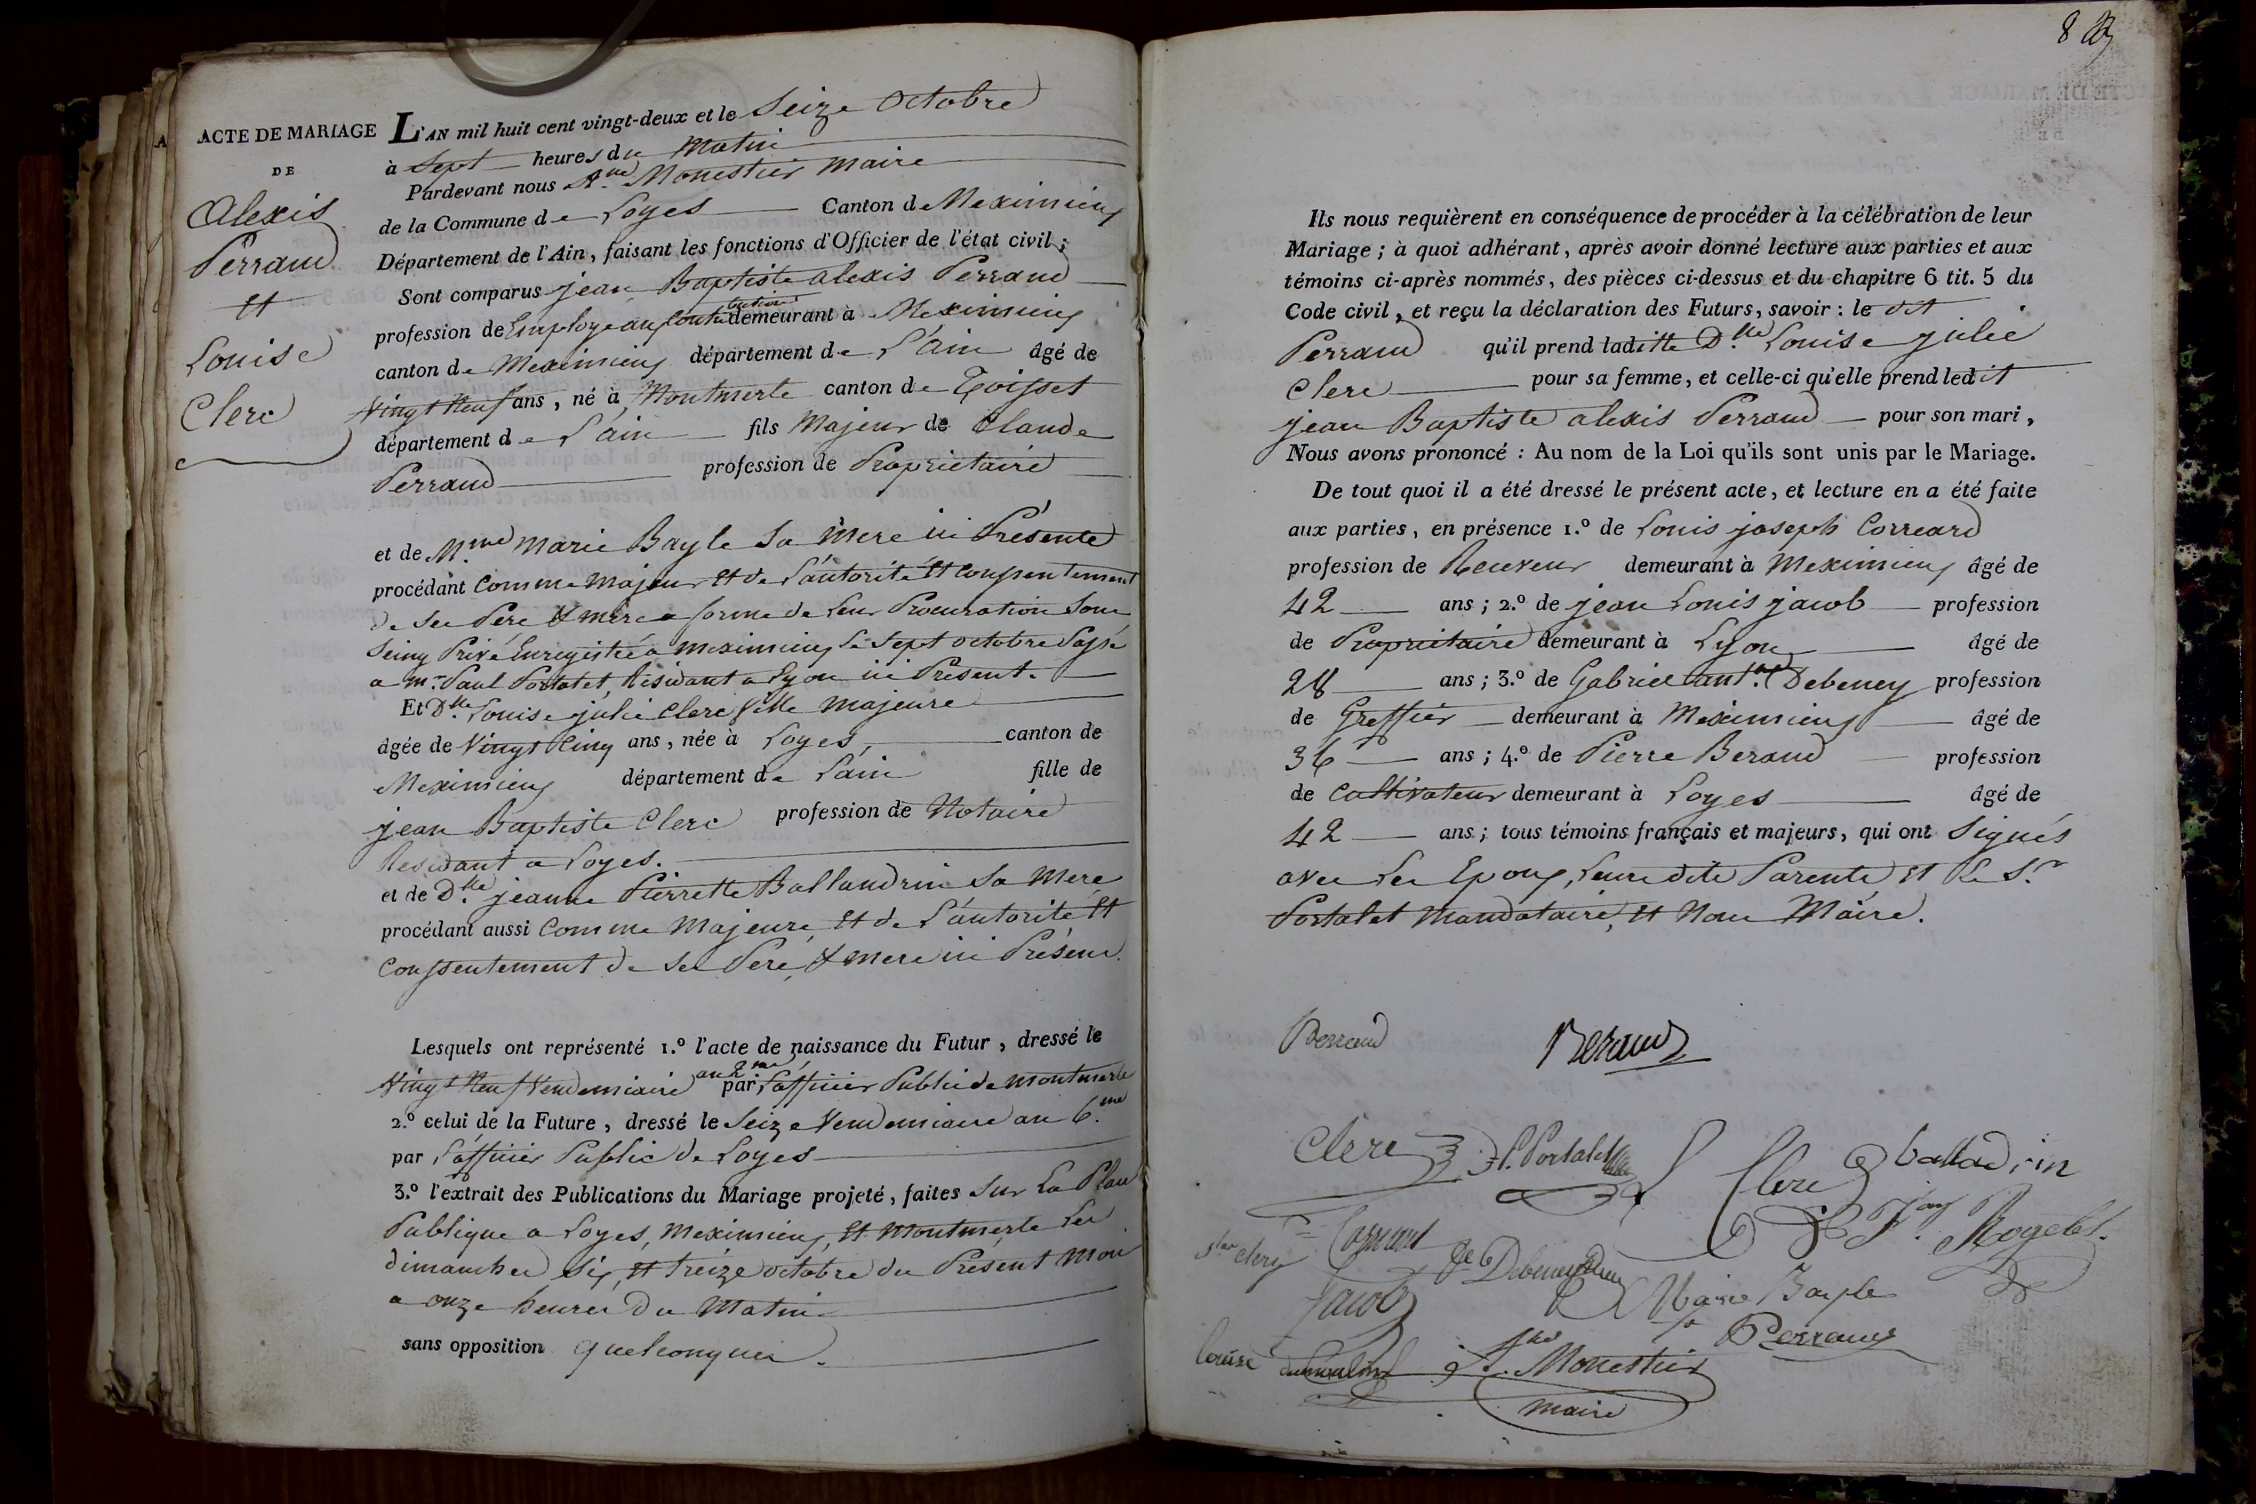 ACTE DE MARIAGE
DE
Alexis
Perraud
et
Louise
Clerc
L'AN mil huit cent vingt-deux et le Seize Octobre
à Sept heures du Matin
Pardevant nous Monestier Maire
de la Commune de Loyes Canton de Meximieux
Département de l'Ain, faisant les fonctions d'Officier de l'état civil;
Sont comparus jean Baptiste alexis Perraud
profession de Employé aux Contributions demeurant à Meximieux
canton de Meximieux département de L'ain âgé de
Vingt Neuf ans, né à Montmerle canton de Toisset
département de L'ain fils Majeur de Claude
Perraud profession de Proprietaire
et de Mme Marie Bayle Sa Mere ici Présente
procédant Comme Majeur et de L'autorité et Conssentement
de Ses Pere & mere a forme de Leur Procuration Sous
Seing Privé Enregistrée a Meximieux Le Sept octobre
a Mr. Paul Portalet, Résidant a Lyon ici Présent.
Et Dlle Louise julie Clerc fille Majeure
âgée de Vingt Cinq ans, née à Loyes, canton de
Meximieux département de L'ain fille de
jean Baptiste Clerc profession de Notaire
Residant a Loyes.
et de Dlle jeanne Pierrette Ballandrin Sa Mere
procédant aussi Comme Majeure, et de L'autorité et
Conssentement de Ses Pere, & mere ici Présens.
Lesquels ont représenté 1.º l'acte de naissance du Futur, dressé le
Vingt Neuf Vendemiaire an 2me, par L'officier Public de Montmerle
2.º celui de la Future, dressé le Seize Vendemiaire an 6.me
par L'officier Public de Loyes
3.º l'extrait des Publications du Mariage projeté, faites Sur La Place
Publique a Loyes, Meximieux, et Montmerle Les
dimanches Six, et treize octobre du Présent Mois
a onze heures du Matin
sans opposition quelconques.
8
Ils nous requièrent en conséquence de procéder à la célébration de leur
Mariage; à quoi adhérant, après avoir donné lecture aux parties et aux
témoins ci-après nommés, des pièces ci-dessus et du chapitre 6 tit. 5 du
Code civil, et reçu la déclaration des Futurs, savoir: le dit
Perraud qu'il prend laditte Dlle Louise julie
Clerc pour sa femme, et celle-ci qu'elle prend ledit
jean Baptiste alexis Perraud pour son mari,
Nous avons prononcé: Au nom de la Loi qu'ils sont unis par le Mariage.
De tout quoi il a été dressé le présent acte, et lecture en a été faite
aux parties, en présence 1.º de Louis joseph Correard
profession de Receveur demeurant à Meximieux âgé de
42 ans; 2.º de jean Louis jacob profession
de Proprietaire demeurant à Lyon âgé de
28 ans; 3.º de Gabriel antne Debeney profession
de Greffier demeurant à Meximieux âgé de
36 ans; 4.º de Pierre Beraud profession
de Cultivateur demeurant à Loyes âgé de
42 ans; tous témoins français et majeurs, qui ont Signés
avec Les Epoux, Leurs dits Parents, et Le Sr
Portalet Mandataire, et Nous Maire.
Perraud Beraud
Clerc P. Portalet Clerc balladrin
Rogelet.
Debeney
Jacob Marie Bayle
Perraud
Louise Monestier
maire